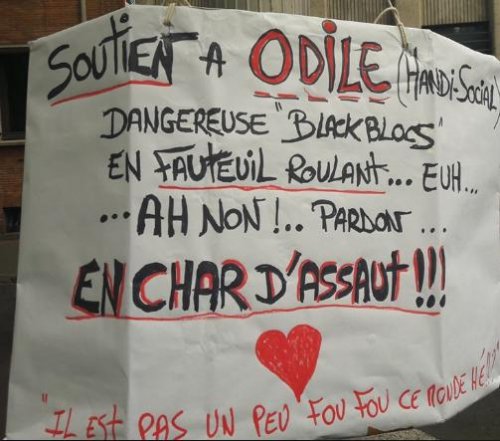 SOUTIEN A ODILE (HANDI-SOCIAL)
DANGEREUSE "BLACKBLOCS"
EN FAUTEUIL ROULANT... EUH...
...AH NON !.. PARDON ...
EN CHAR D'ASSAUT !!!
"IL EST PAS UN PEU FOU FOU CE MONDE HÉ !!?"